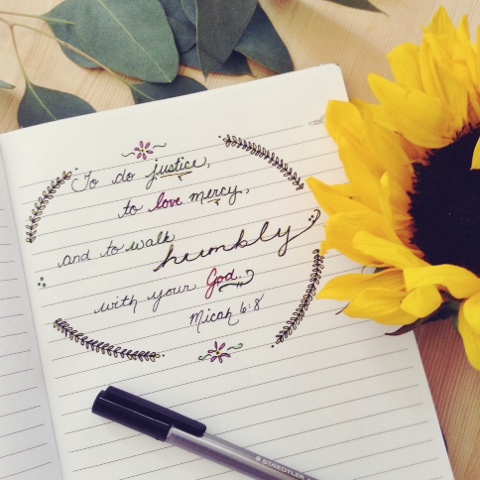 To do justice,
to love mercy,
and to walk
humbly
with your God.
Micah 6:8
STAEDTLER